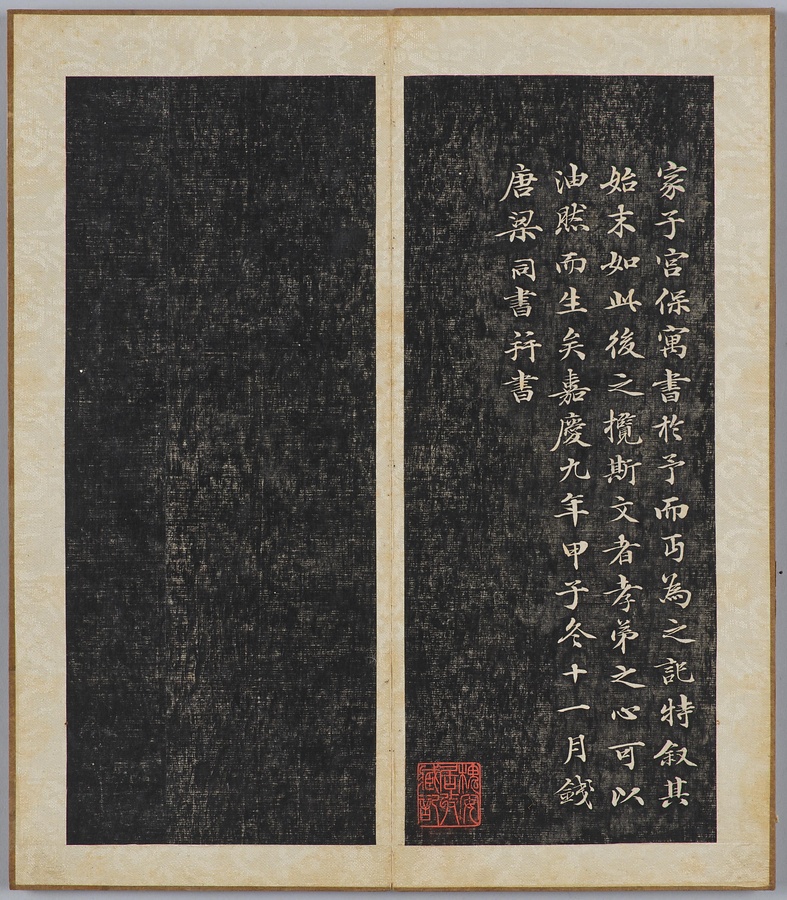 家子宮保寓書於予而丐為之記特叙其
始末如此後之攬斯文者孝弟之心可以
油然而生矣嘉慶九年甲子冬十一月錢
唐梁同書幷書